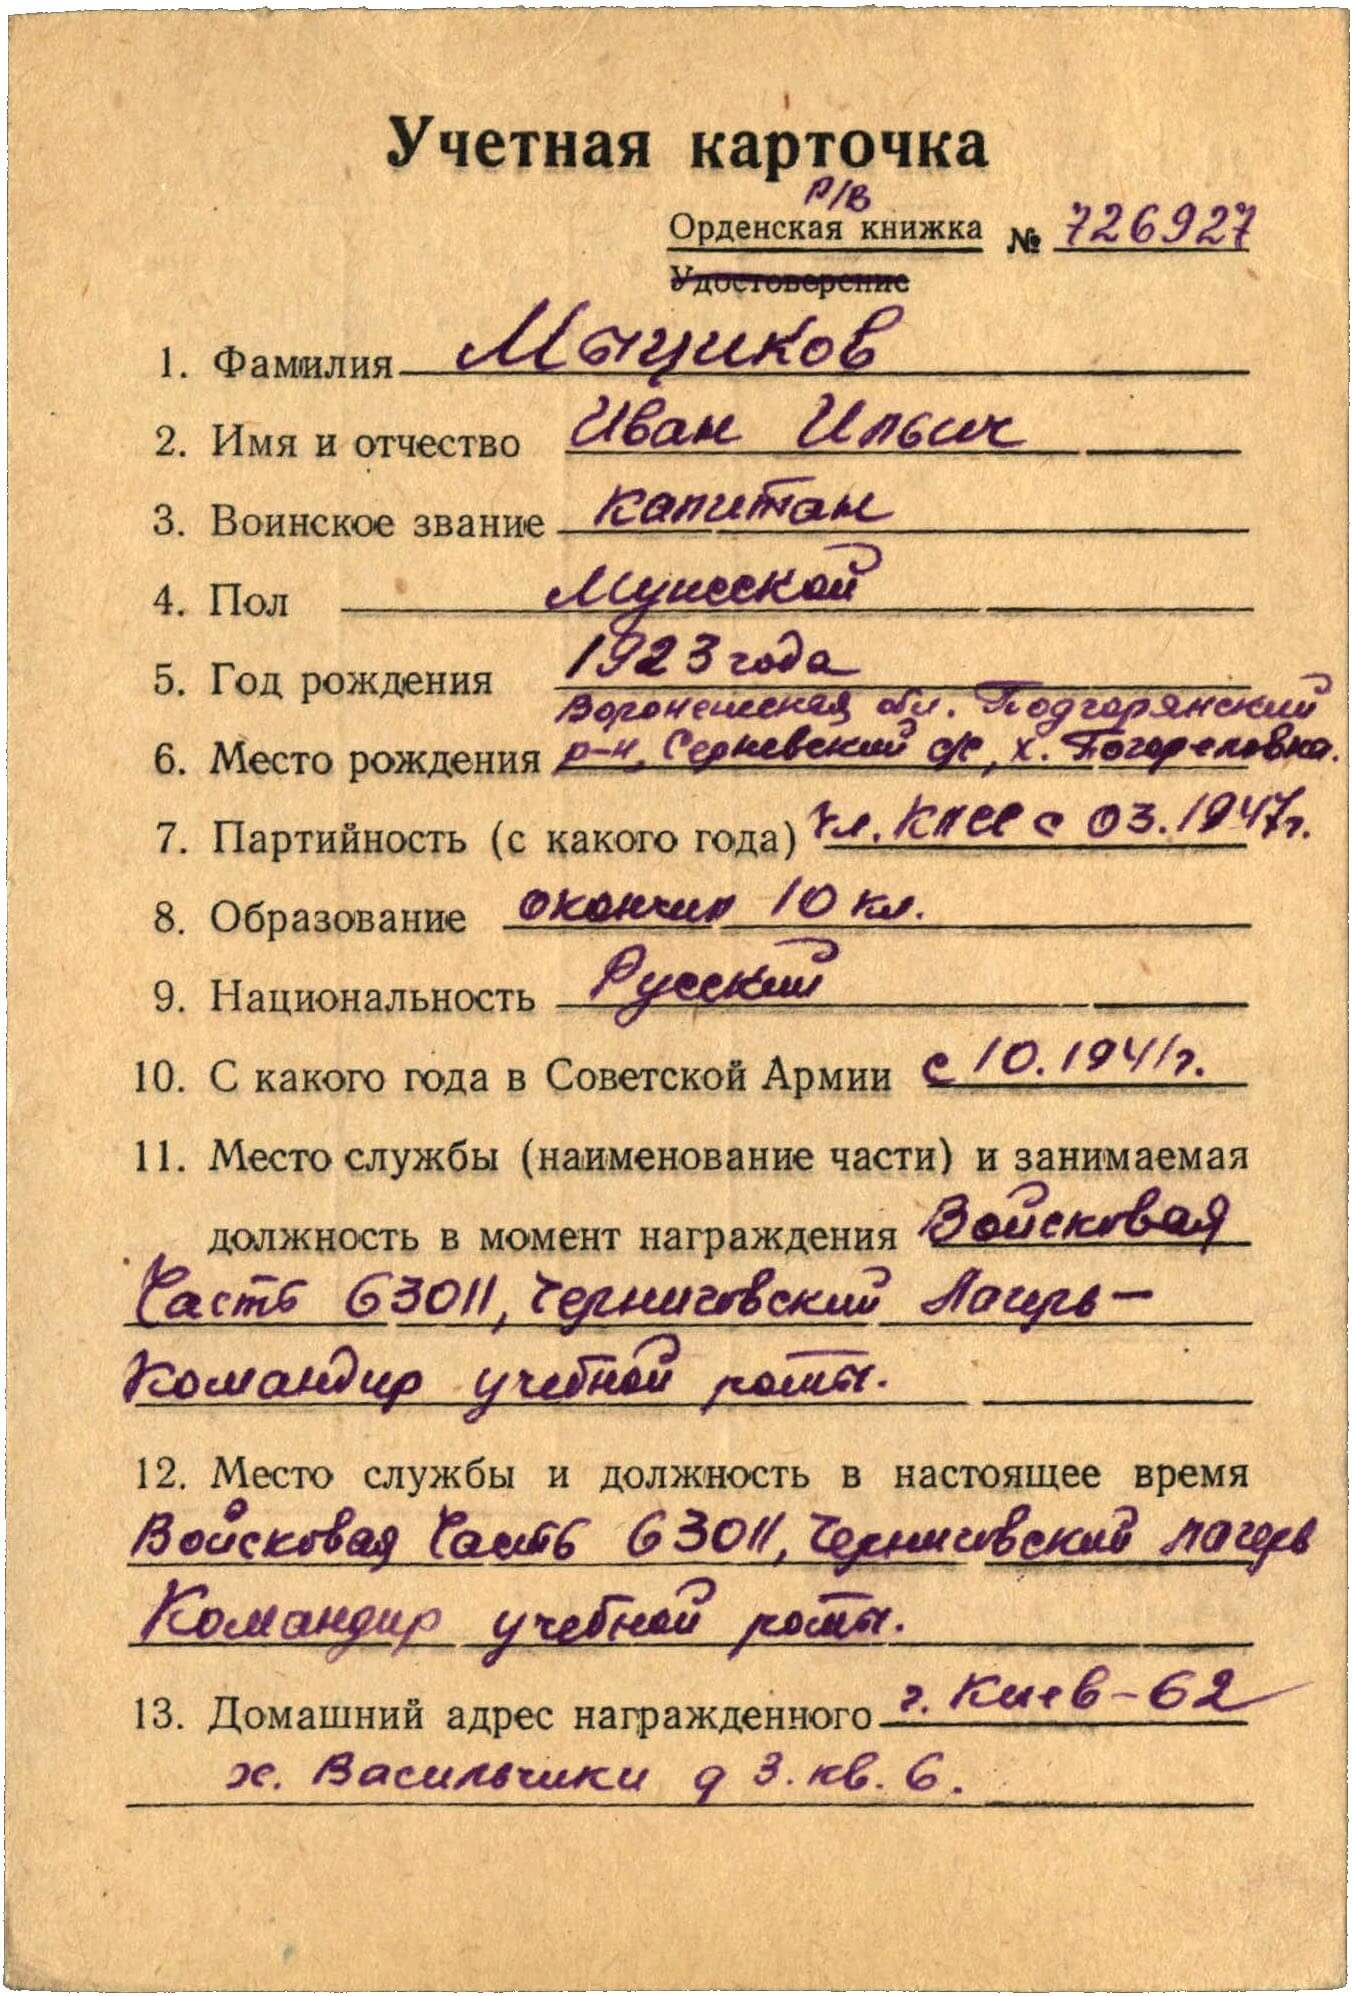 Учетная карточка
Р/В
Орденская книжка № 726927
Удостоверение
1. Фамилия Мыциков
2. Имя и отчество Иван Ильич
3. Воинское звание капитан
4. Пол Мужской
5. Год рождения 1923 года
Воронежская обл. Подгорянский
6. Место рождения р-н, с/с, х. Погореловка.
7. Партийность (с какого года) чл. КПСС с 03.1947г.
8. Образование окончил 10 кл.
9. Национальность Русский
10. С какого года в Советской Армии с 10.1941г.
11. Место службы (наименование части) и занимаемая
должность в момент награждения Войсковая
Часть 63011, Черниговский Лагерь–
Командир учебной роты.
12. Место службы и должность в настоящее время
Войсковая Часть 63011, Черниговский лагерь
Командир учебной роты.
13. Домашний адрес награжденного г. Киев-62
х. Васильчики д 3. кв. 6.